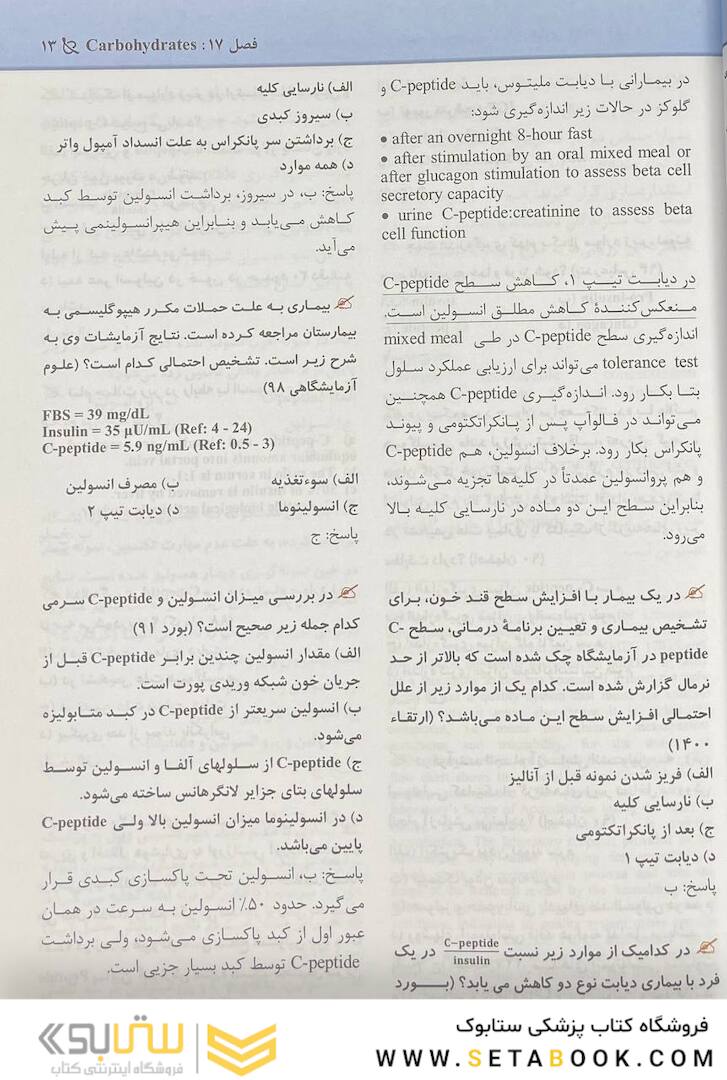 فصل ۱۷: Carbohydrates ۱۳
در بیمارانی با دیابت ملیتوس، باید C-peptide و
گلوکز در حالات زیر اندازه‌گیری شود:
• after an overnight 8-hour fast
• after stimulation by an oral mixed meal or
after glucagon stimulation to assess beta cell
secretory capacity
• urine C-peptide:creatinine to assess beta
cell function
در دیابت تیپ ۱، کاهش سطح C-peptide
منعکس‌کنندهٔ کاهش مطلق انسولین است.
اندازه‌گیری سطح C-peptide در طی mixed meal
tolerance test می‌تواند برای ارزیابی عملکرد سلول
بتا بکار رود. اندازه‌گیری C-peptide همچنین
می‌تواند در فالوآپ پس از پانکراتکتومی و پیوند
پانکراس بکار رود. برخلاف انسولین، هم C-peptide
و هم پروانسولین عمدتاً در کلیه‌ها تجزیه می‌شوند،
بنابراین سطح این دو ماده در نارسایی کلیه بالا
می‌رود.
در یک بیمار با افزایش سطح قند خون، برای
تشخیص بیماری و تعیین برنامهٔ درمانی، سطح C-
peptide در آزمایشگاه چک شده است که بالاتر از حد
نرمال گزارش شده است. کدام یک از موارد زیر از علل
احتمالی افزایش سطح این ماده می‌باشد؟ (ارتقاء
۱۴۰۰)
الف) فریز شدن نمونه قبل از آنالیز
ب) نارسایی کلیه
ج) بعد از پانکراتکتومی
د) دیابت تیپ ۱
پاسخ: ب
در کدامیک از موارد زیر نسبت C-peptide/insulin در یک
فرد با بیماری دیابت نوع دو کاهش می یابد؟ (بورد
الف) نارسایی کلیه
ب) سیروز کبدی
ج) برداشتن سر پانکراس به علت انسداد آمپول واتر
د) همه موارد
پاسخ: ب، در سیروز، برداشت انسولین توسط کبد
کاهش می‌یابد و بنابراین هیپرانسولینمی پیش
می‌آید.
بیماری به علت حملات مکرر هیپوگلیسمی به
بیمارستان مراجعه کرده است. نتایج آزمایشات وی به
شرح زیر است. تشخیص احتمالی کدام است؟ (علوم
آزمایشگاهی ۹۸)
FBS = 39 mg/dL
Insulin = 35 µU/mL (Ref: 4 - 24)
C-peptide = 5.9 ng/mL (Ref: 0.5 - 3)
الف) سوءتغذیه ب) مصرف انسولین
ج) انسولینوما د) دیابت تیپ ۲
پاسخ: ج
در بررسی میزان انسولین و C-peptide سرمی
کدام جمله زیر صحیح است؟ (بورد ۹۱)
الف) مقدار انسولین چندین برابر C-peptide قبل از
جریان خون شبکه وریدی پورت است.
ب) انسولین سریعتر از C-peptide در کبد متابولیزه
می‌شود.
ج) C-peptide از سلولهای آلفا و انسولین توسط
سلولهای بتای جزایر لانگرهانس ساخته می‌شود.
د) در انسولینوما میزان انسولین بالا ولی C-peptide
پایین می‌باشد.
پاسخ: ب، انسولین تحت پاکسازی کبدی قرار
می گیرد. حدود ۵۰٪ انسولین به سرعت در همان
عبور اول از کبد پاکسازی می‌شود، ولی برداشت
C-peptide توسط کبد بسیار جزیی است.
فروشگاه کتاب پزشکی ستابوک
WWW.SETABOOK.COM
ستابوک
فروشگاه اینترنتی کتاب